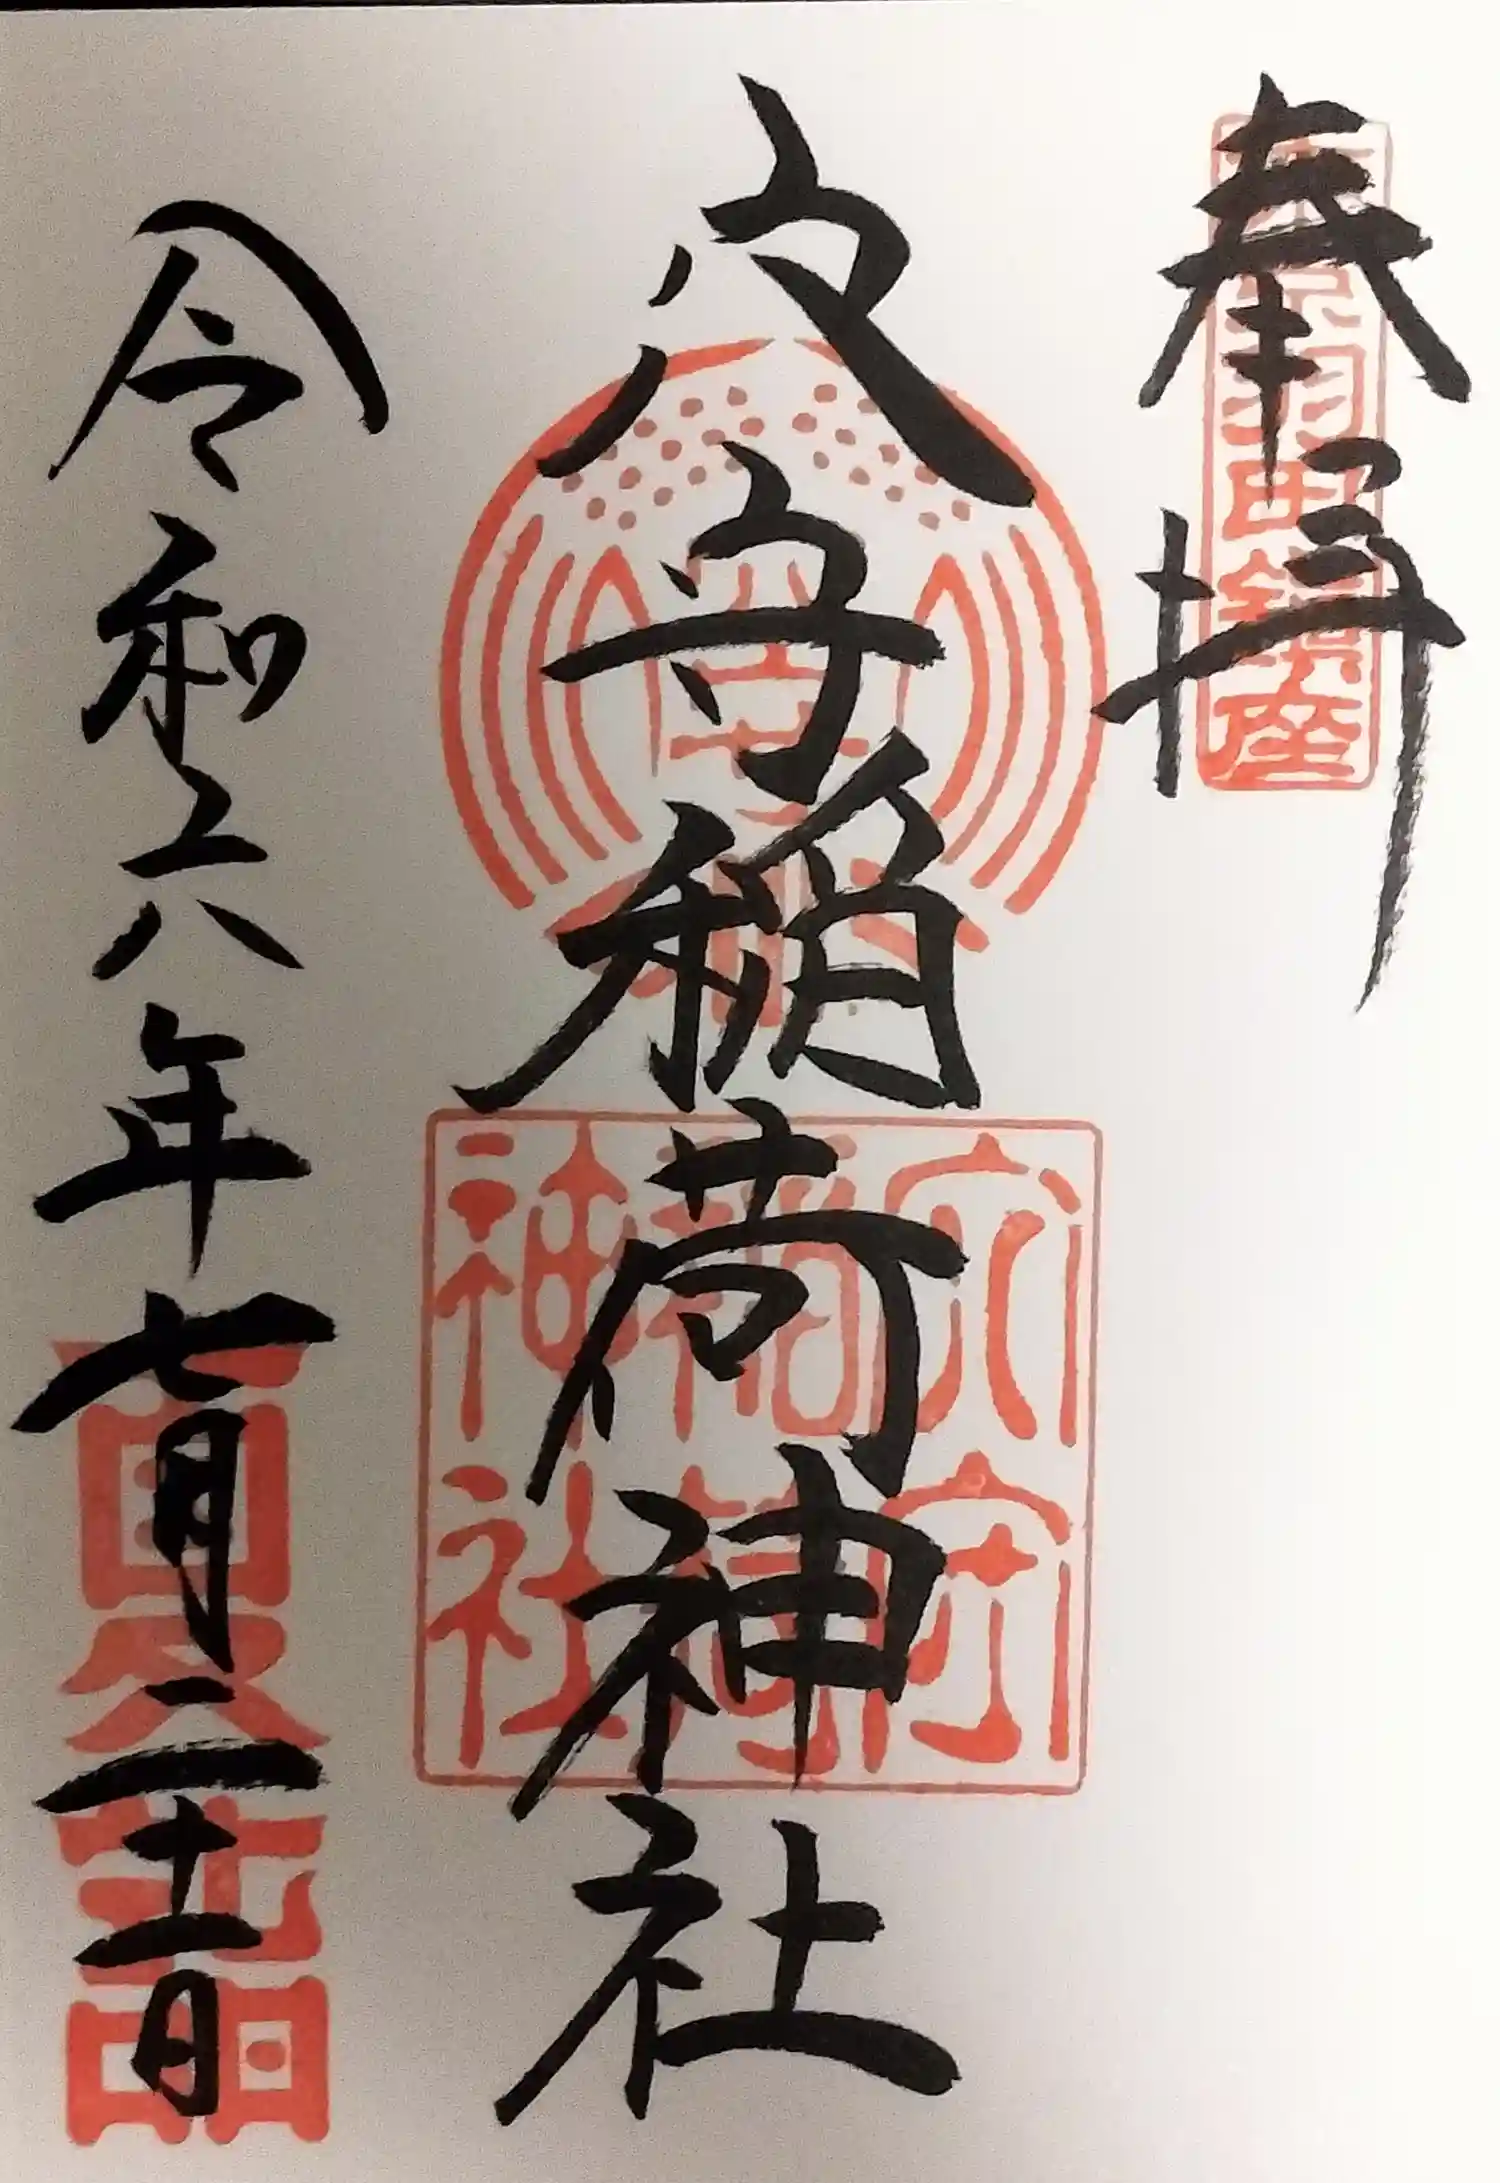 奉拝
東京羽田鎮座
穴守稲荷神社
穴守稲荷神社
令和六年七月二十一日